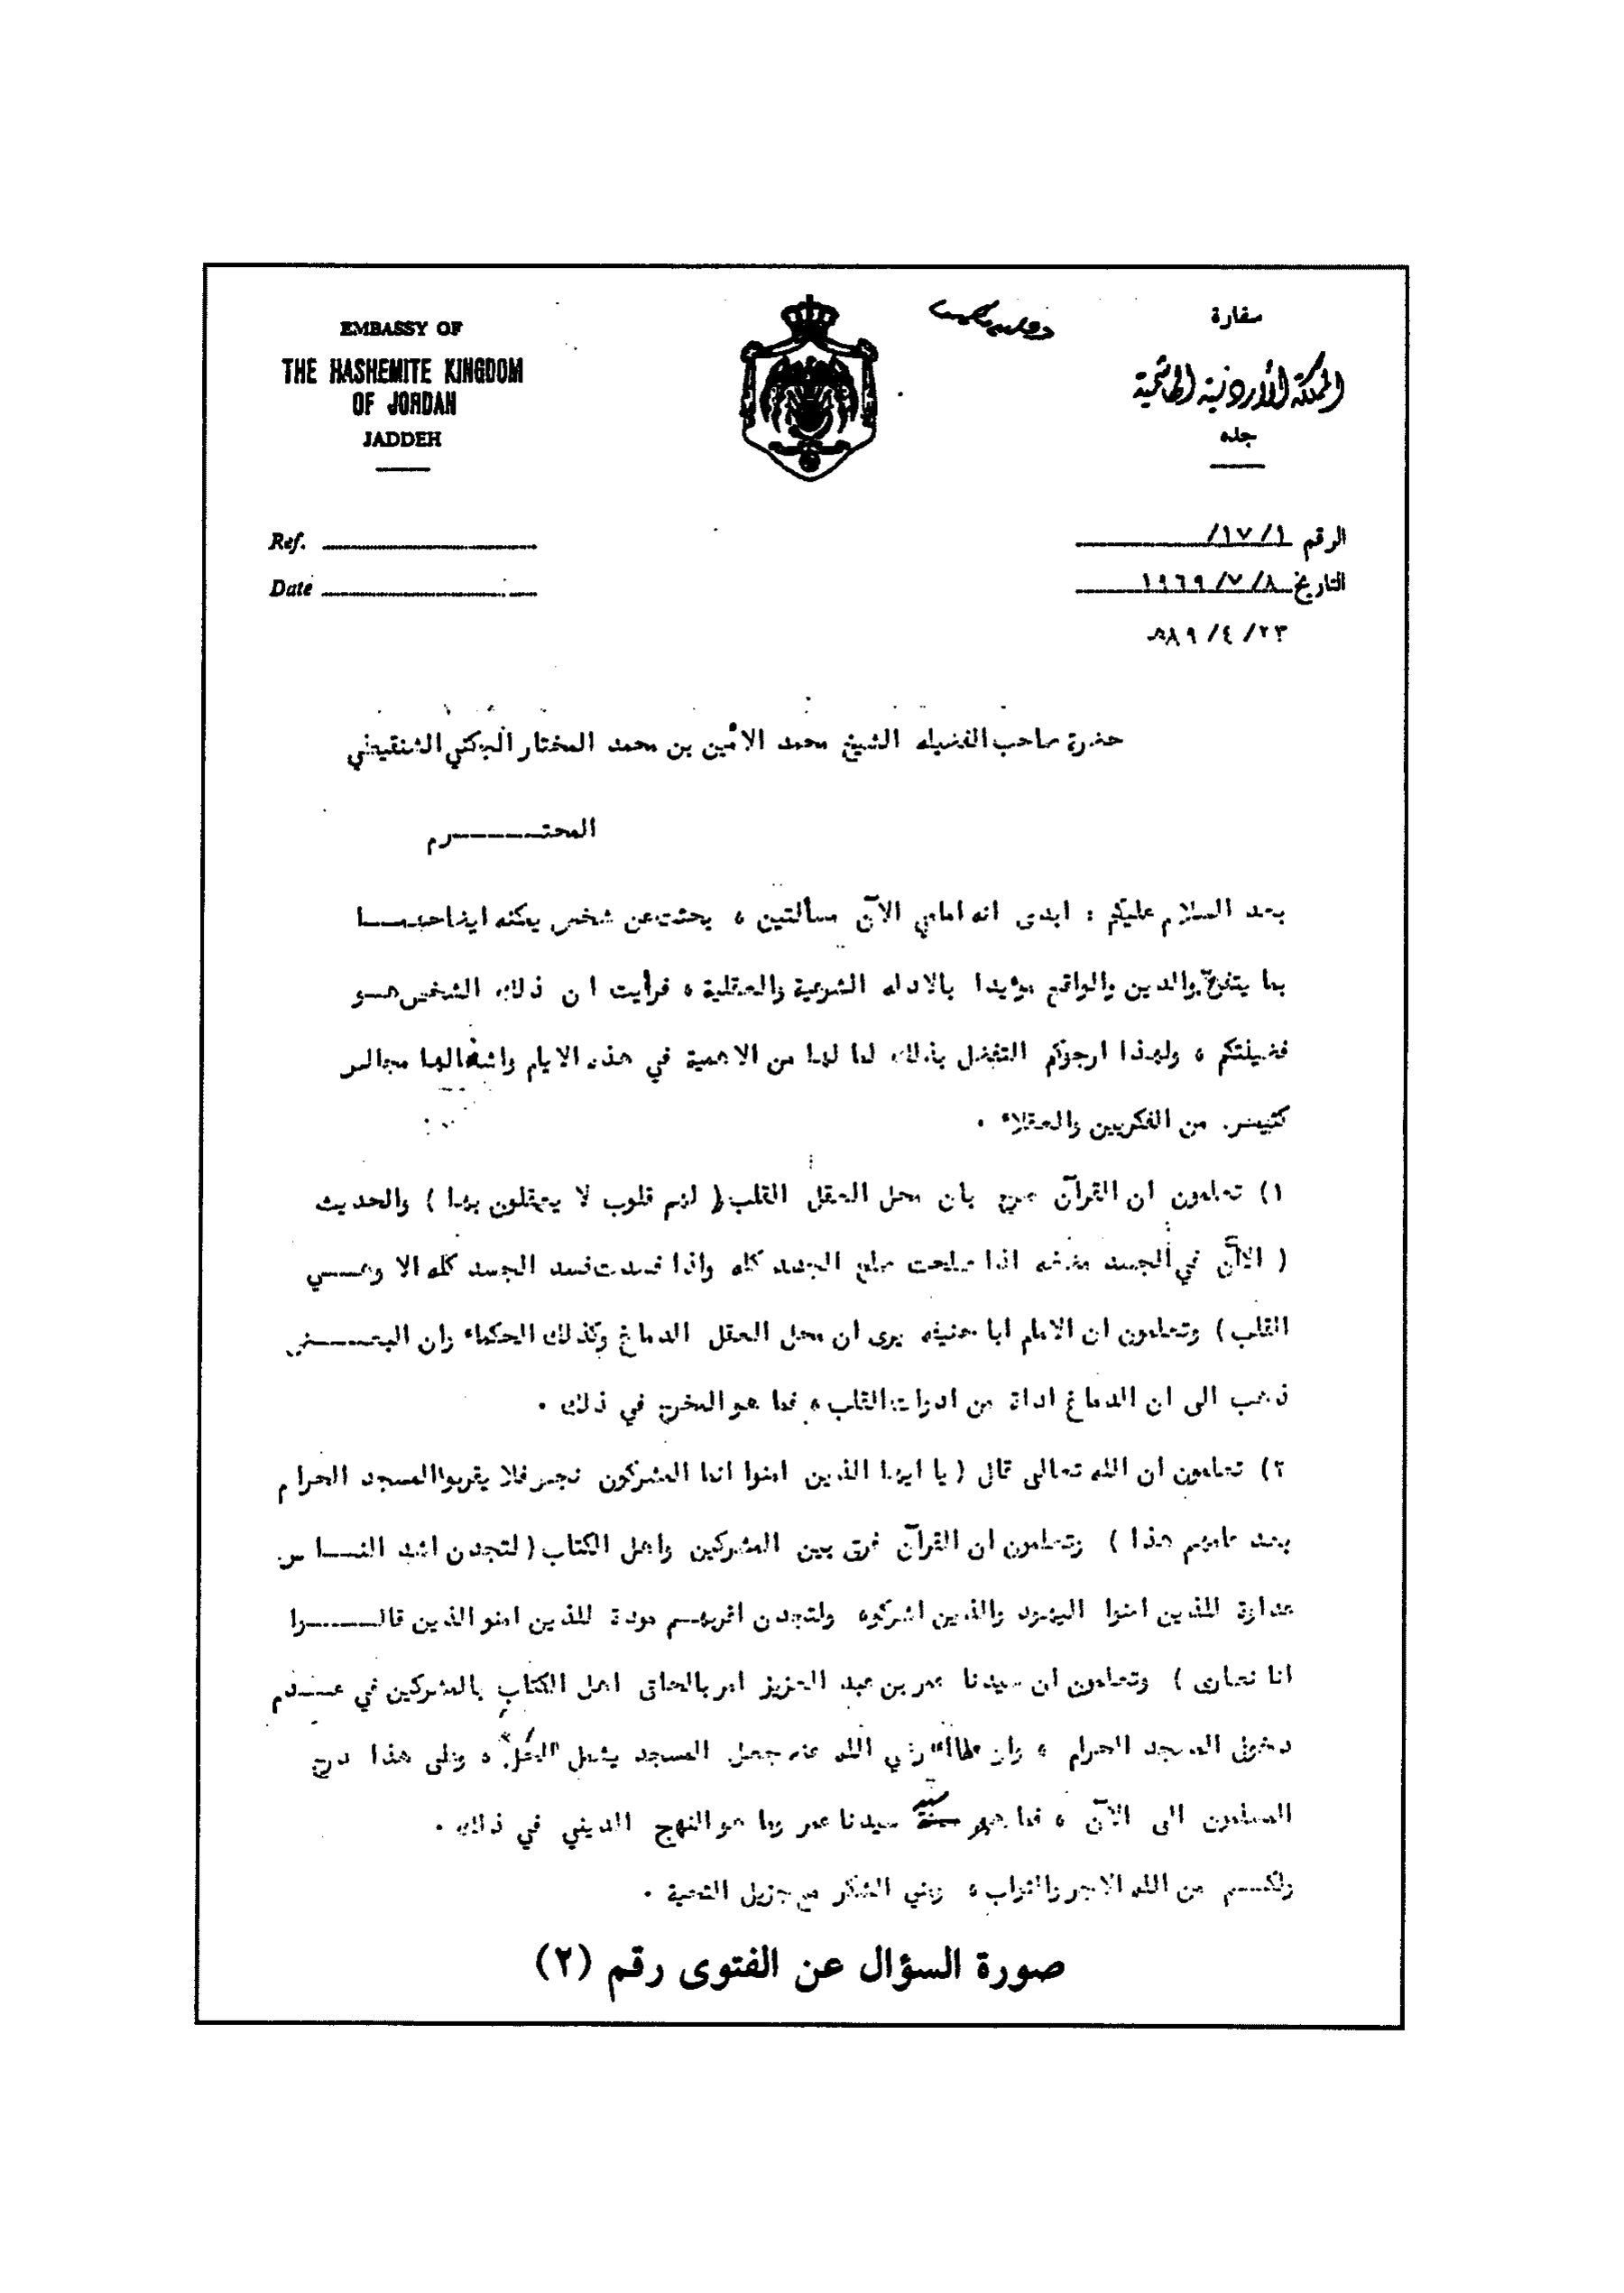 EMBASSY OF
THE HASHEMITE KINGDOM
OF JORDAN
JADDEH
سفارة
المملكة الأردنية الهاشمية
جده
Ref.
Date
الرقم ١/ ١٧/
التاريخ ٨/ ٧/ ١٩٦٩
٢٣/ ٤/ ٨٩هـ
حضرة صاحب الفضيله الشيخ محمد الأمين بن محمد المختار الجكني الشنقيطي
المحتـــــــرم
بعد السلام عليكم : ابدى انه امامي الآن مسألتين ، بحثت عن شخص يمكنه ايضاحهمـــا
بما يتفق والدين والواقع مؤيدا بالادله الشرعية والعقلية ، فرأيت ان ذلك الشخص هـو
فضيلتكم ، ولهذا ارجوكم التفضل بذلك لما لهما من الاهمية في هذه الايام واشغالهما مجالس
كثيره من الفكريين والعقلاء .
١) تعلمون ان القرآن صرح بان محل العقل القلب ( لهم قلوب لا يعقلون بها ) والحديث
( الآن في الجسد مضغه اذا صلحت صلح الجسد كله واذا فسدت فسد الجسد كله الا وهـــي
القلب ) وتعلمون ان الامام ابا حنيفه يرى ان محل العقل الدماغ وكذلك الحكماء وان البعـــض
ذهب الى ان الدماغ اداة من ادوات القلب ، فما هو المخرج في ذلك .
٢) تعلمون ان الله تعالى قال ( يا ايها الذين امنوا انما المشركون نجس فلا يقربوا المسجد الحرام
بعد عامهم هذا ) وتعلمون ان القرآن فرق بين المشركين واهل الكتاب ( لتجدن اشد النـــاس
عداوة للذين امنوا اليهود والذين اشركوه ولتجدن اقربهـم مودة للذين امنو الذين قالـــــوا
انا نصارى ) وتعلمون ان سيدنا عمر بن عبد العزيز امر بالحاق اهل الكتاب بالمشركين في عـــدم
دخول المسجد الحرام ، وان رضي الله عنه جعل المسجد يشمل الكل ، وعلى هذا درج
المسلمون الى الآن ، فما هو سند سيدنا عمر وما هو النهج الديني في ذلك .
ولكـــم من الله الاجر والثواب ، ومني الشكر مع جزيل التحية .
صورة السؤال عن الفتوى رقم (٢)